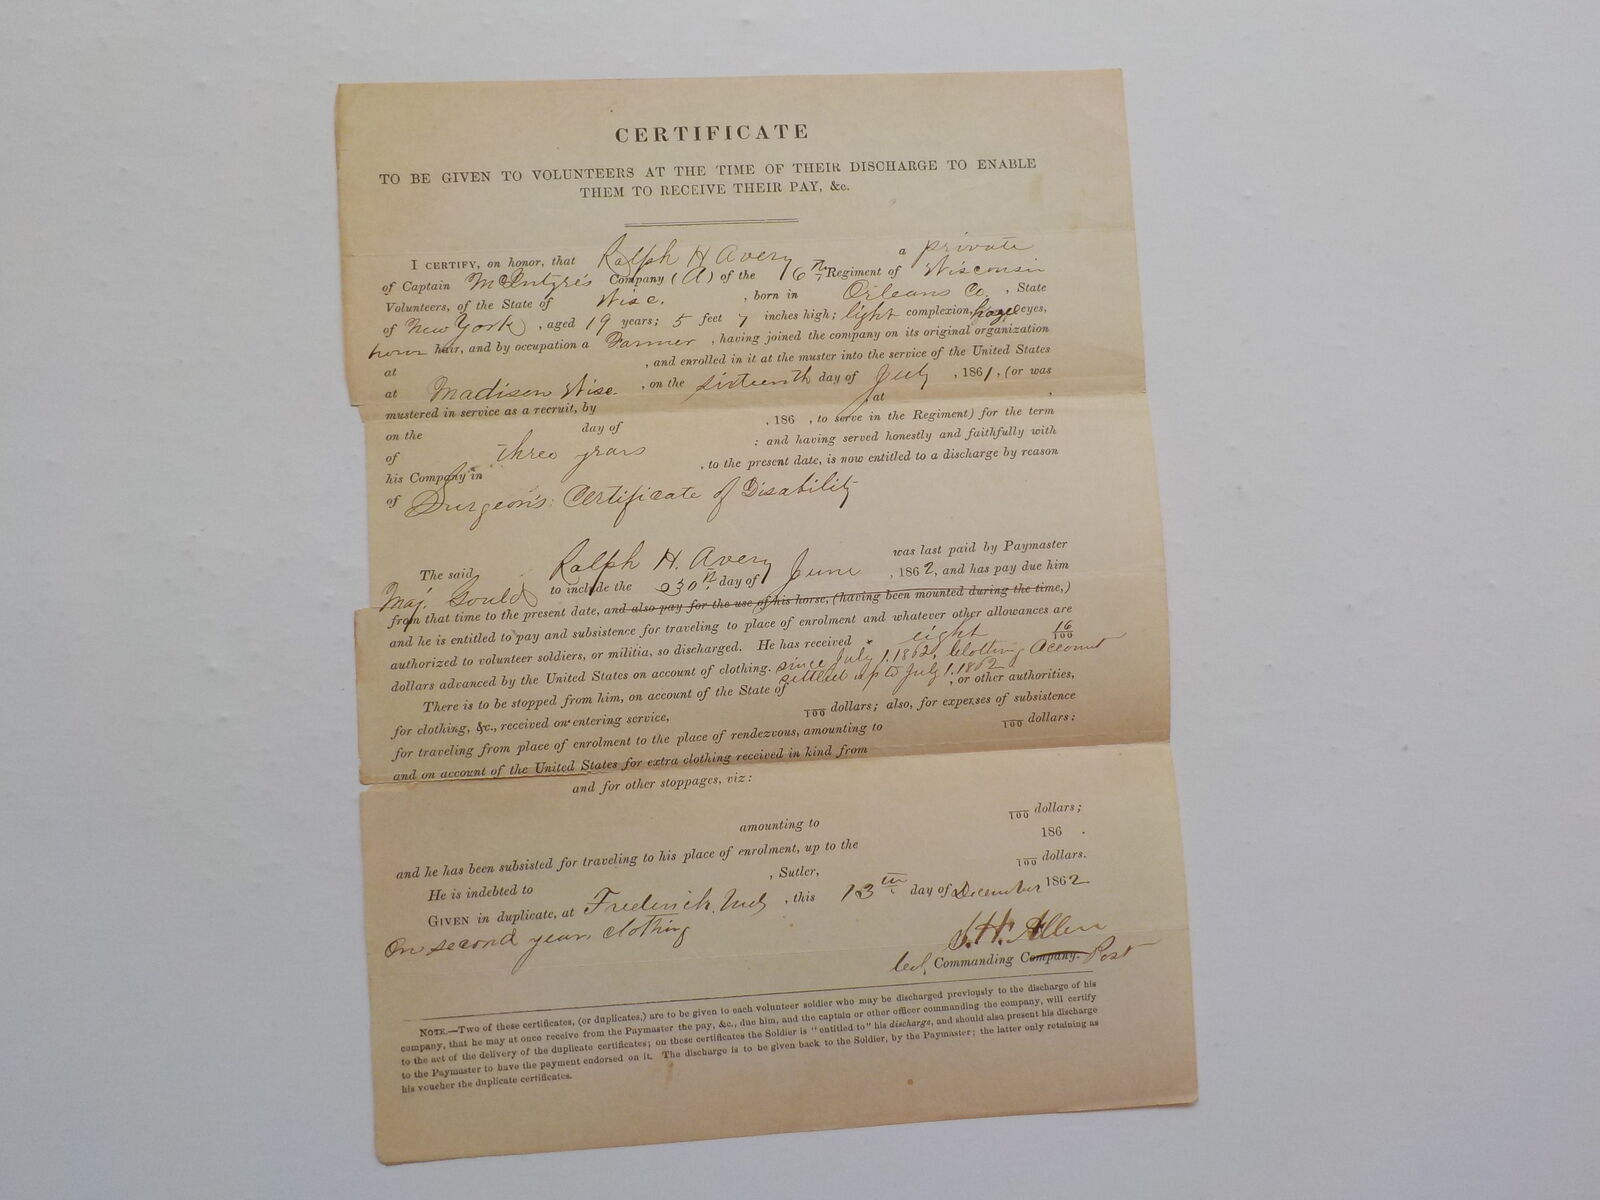 CERTIFICATE
TO BE GIVEN TO VOLUNTEERS AT THE TIME OF THEIR DISCHARGE TO ENABLE
THEM TO RECEIVE THEIR PAY, &c.
I CERTIFY, on honor, that Ralph H Avery a private
of Captain McIntyre's Company (A) of the Regiment of Wisconsin
Volunteers, of the State of Wisc. , born in Orleans Co. , State
of New York , aged 19 years; 5 feet 7 inches high; light complexion, hazel eyes,
hair, and by occupation a Farmer , having joined the company on its original organization
at , and enrolled in it at the muster into the service of the United States
at Madison Wisc. , on the sixteenth day of July , 1861, (or was
mustered in service as a recruit, by at ,
on the day of , 186 , to serve in the Regiment) for the term
of three years : and having served honestly and faithfully with
his Company in , to the present date, is now entitled to a discharge by reason
of Surgeon's Certificate of Disability
The said Ralph H. Avery was last paid by Paymaster
Maj. Gould to include the 30th day of June , 1862, and has pay due him
from that time to the present date, and also pay for the use of his horse, (having been mounted during the time,)
and he is entitled to pay and subsistence for traveling to place of enrolment and whatever other allowances are
authorized to volunteer soldiers, or militia, so discharged. He has received * eight 16/100
dollars advanced by the United States on account of clothing. since July 1. 1862, Clothing Account
settled up to July 1. 1862
There is to be stopped from him, on account of the State of , or other authorities,
for clothing, &c., received on entering service, /100 dollars; also, for expenses of subsistence
for traveling from place of enrolment to the place of rendezvous, amounting to /100 dollars:
and on account of the United States for extra clothing received in kind from
and for other stoppages, viz:
amounting to /100 dollars;
and he has been subsisted for traveling to his place of enrolment, up to the 186 .
He is indebted to , Sutler, /100 dollars.
GIVEN in duplicate, at Frederick, Md , this 13th day of December 1862
On second years clothing
Allen
Col, Commanding Company. Post
NOTE.—Two of these certificates, (or duplicates,) are to be given to each volunteer soldier who may be discharged previously to the discharge of his
company, that he may at once receive from the Paymaster the pay, &c., due him, and the captain or other officer commanding the company, will certify
to the act of the delivery of the duplicate certificates; on these certificates the Soldier is "entitled to" his discharge, and should also present his discharge
to the Paymaster to have the payment endorsed on it. The discharge is to be given back to the Soldier, by the Paymaster; the latter only retaining as
his voucher the duplicate certificates.